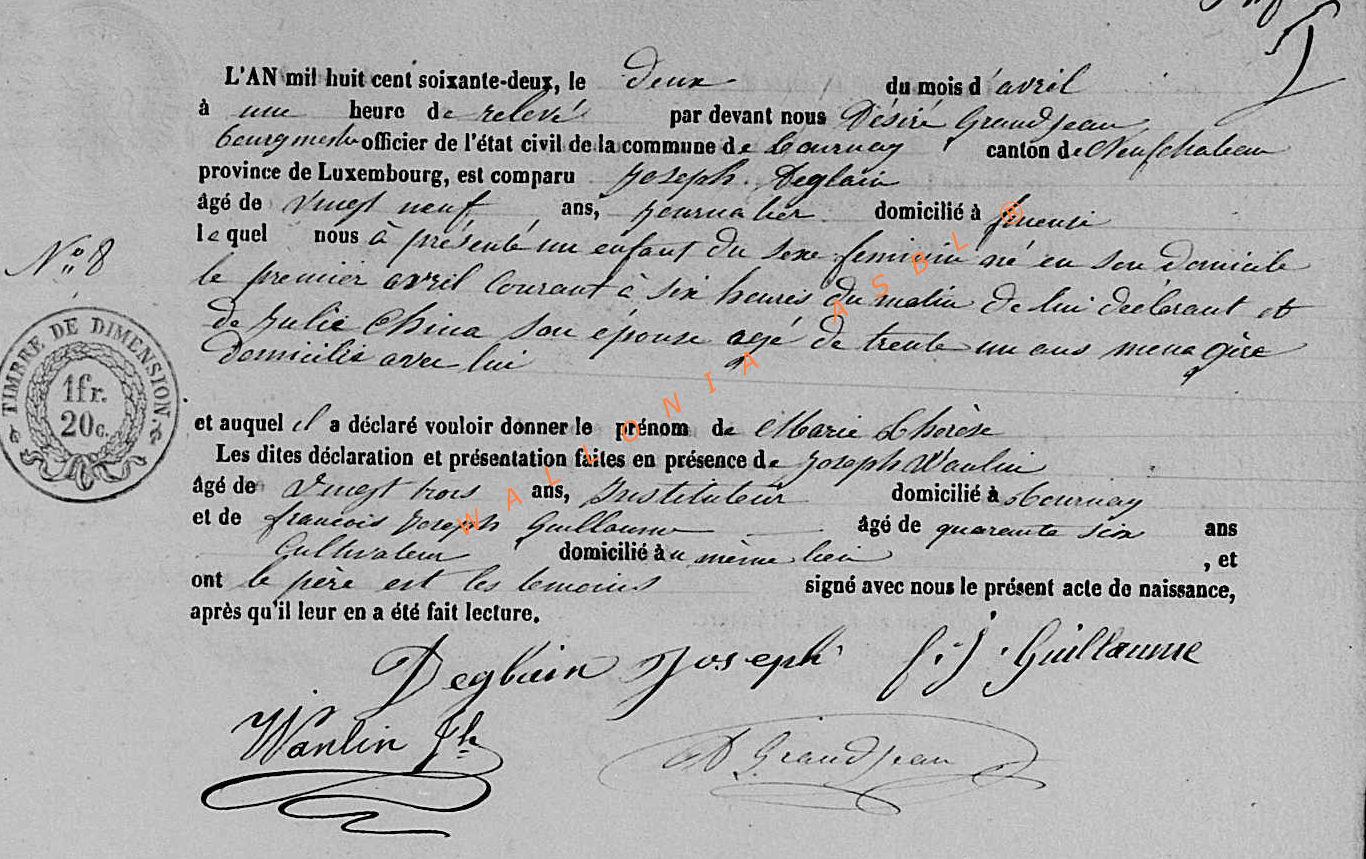 L'AN mil huit cent soixante-deux, le deux du mois d'avril
à une heure de relevé par devant nous Désiré Grandjean
bourgmestre officier de l'état civil de la commune de Tournay canton de Neufchateau
province de Luxembourg, est comparu Joseph Deglain
âgé de Vingt neuf ans, journalier domicilié à fineuse
le quel nous à présenté un enfant du sexe feminin né en son domicile
le premier avril Courant à six heures du matin de lui déclarant et
de Julie China son épouse agé de trente un ans menagère
domicilié avec lui
N° 8
TIMBRE DE DIMENSION
1fr.
20c.
et auquel il a déclaré vouloir donner le prénom de Marie Thérèse
Les dites déclaration et présentation faites en présence de Joseph Wanlin
âgé de Vingt trois ans, Instituteur domicilié à Tournay
et de francois Joseph Guillaume âgé de quarante six ans
Cultivateur domicilié àu même lieu , et
ont le père est les temoins signé avec nous le présent acte de naissance,
après qu'il leur en a été fait lecture.
Deglain Joseph F. J. Guillaume
Wanlin Jh
D Grandjean
WALLONIA ASBL ®